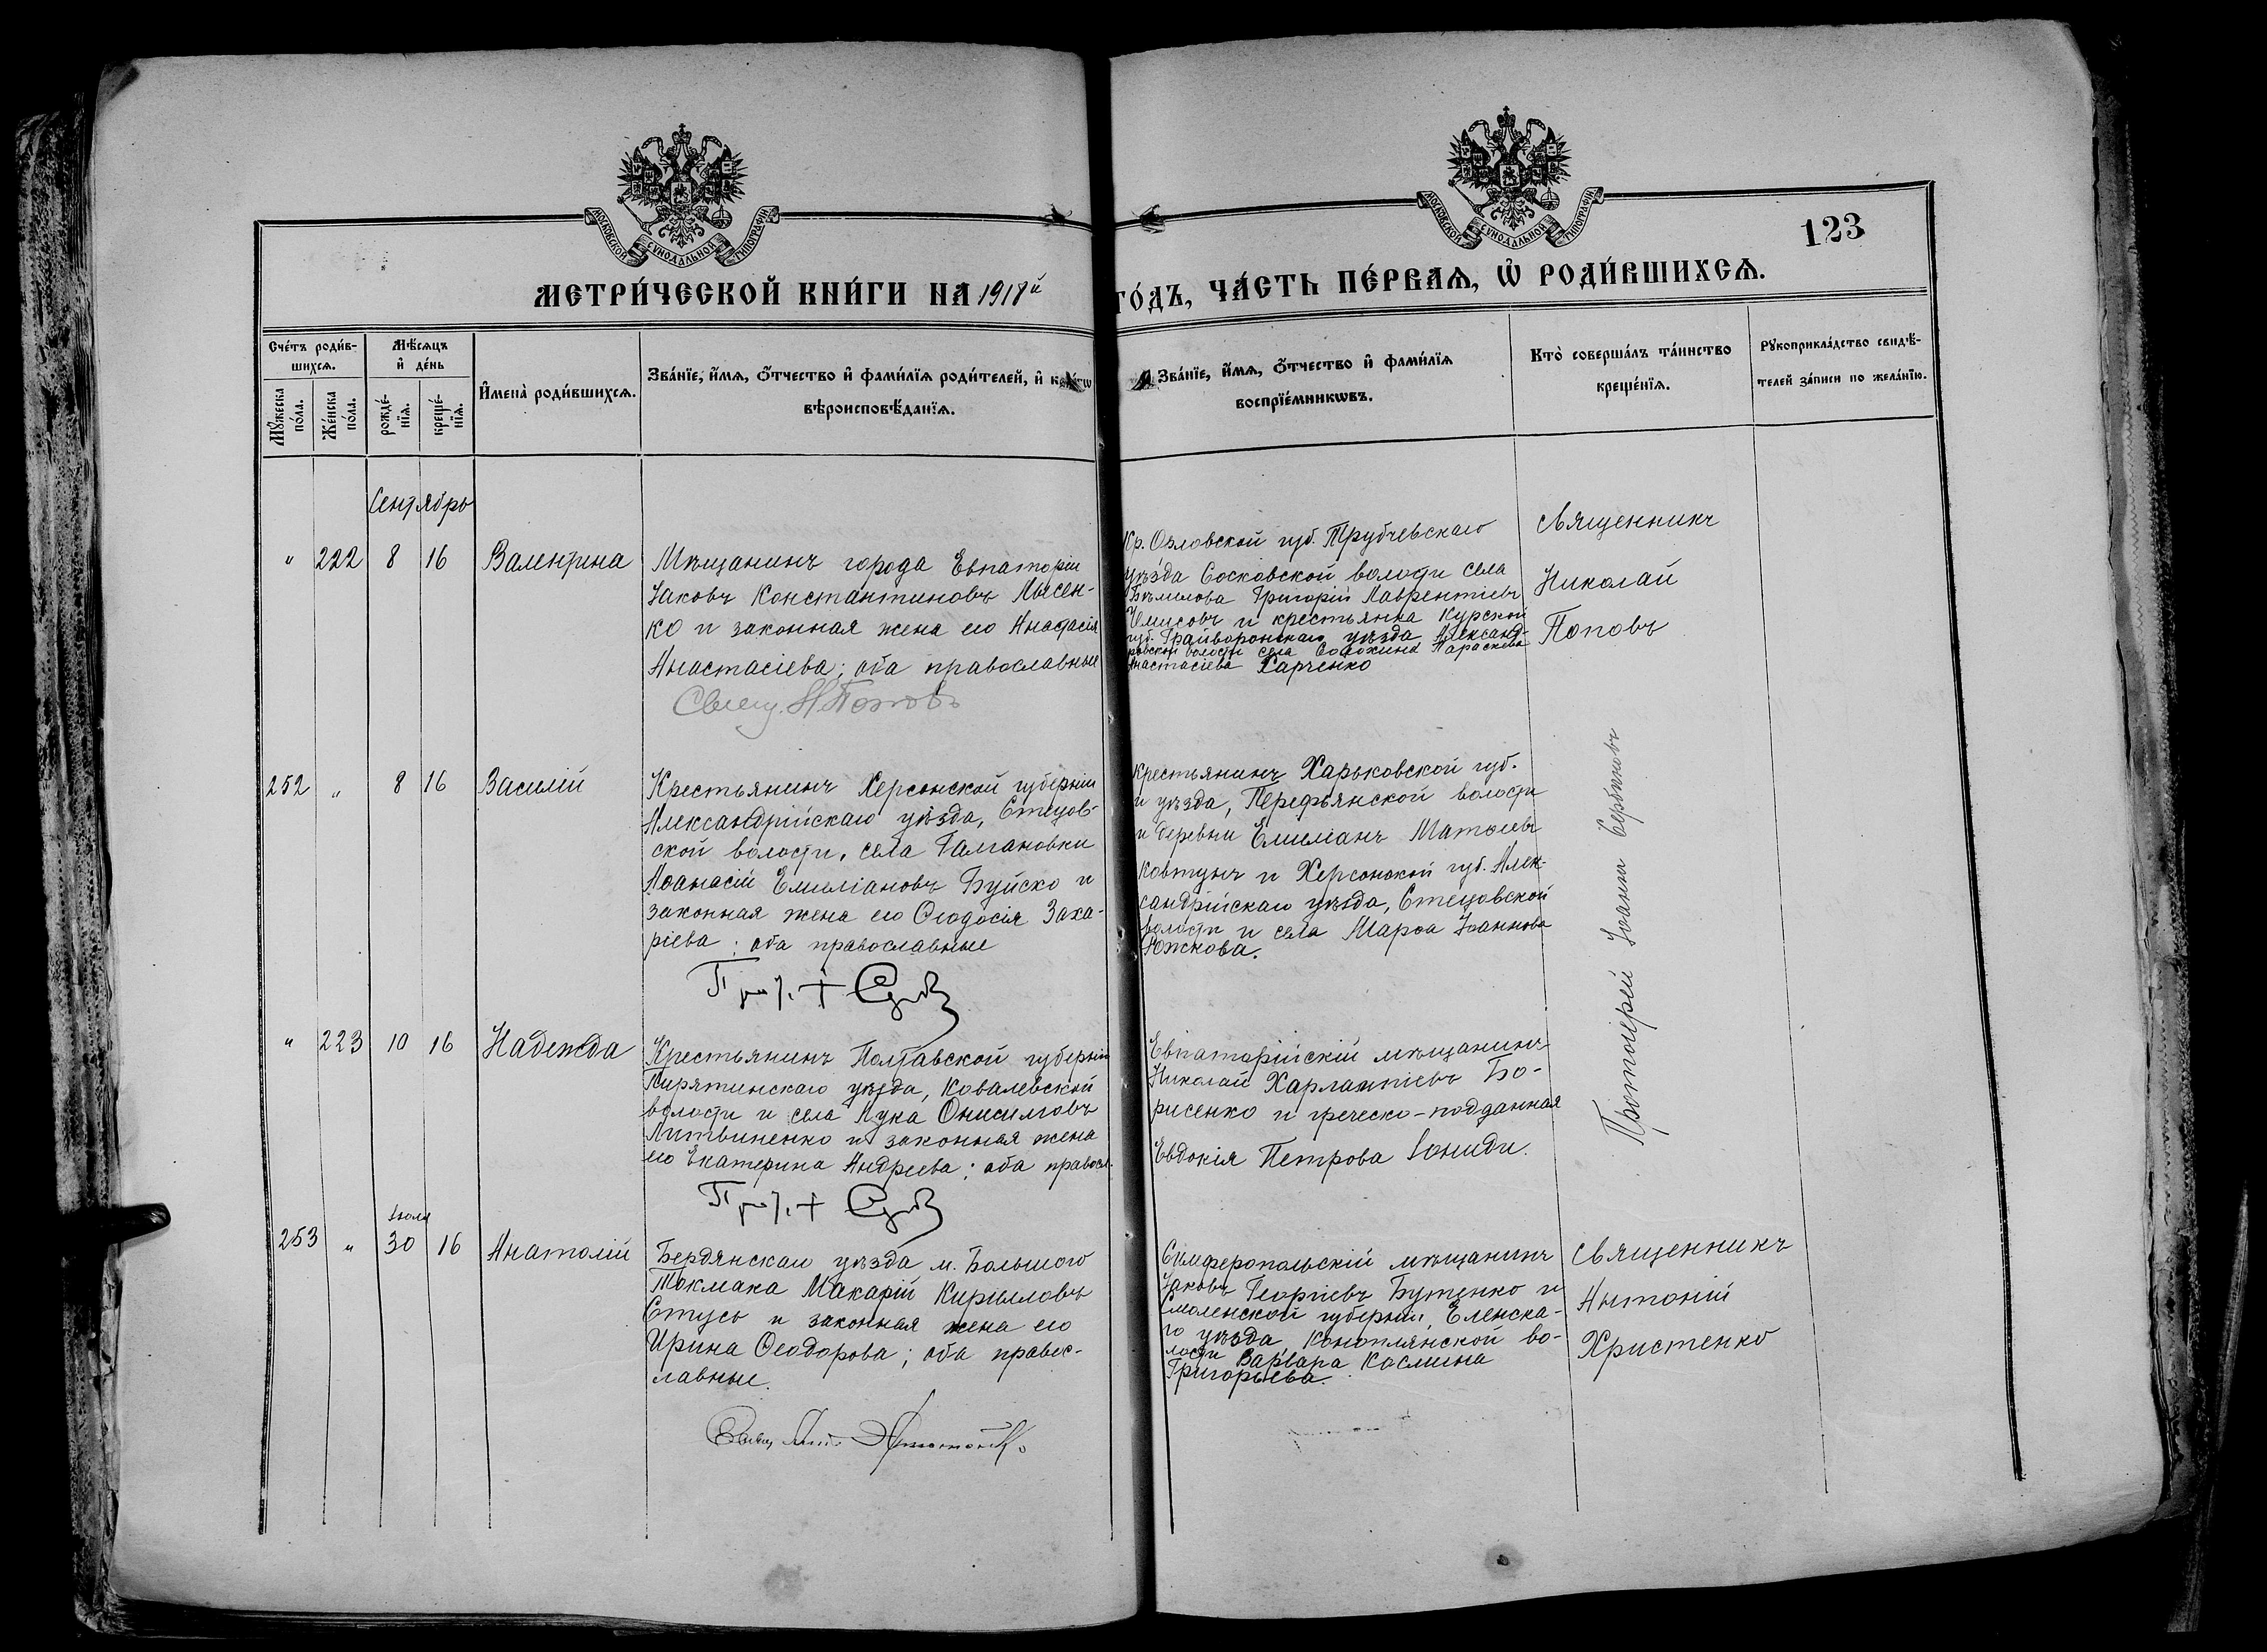 МОСКОВСКОЙ СУНОДАЛЬНОЙ ТИПОГРАФІИ
МОСКОВСКОЙ СУНОДАЛЬНОЙ ТИПОГРАФІИ
123
МЕТРИ́ЧЕСКОЙ КНИ́ГИ НА 1918й
ГО́ДЪ, ЧА́СТЬ ПЕ́РВАѦ, Ѽ РОДИ́ВШИХСѦ.
Сче́тъ роди́в-
шихсѧ.
Мѣ́сѧцъ
и҆ де́нь
Мꙋ́жеска
по́ла.
Же́нска
по́ла.
рожде́-
нїѧ.
креще́-
нїѧ.
И҆мена̀ роди́вшихсѧ.
Зва́нїе, и҆́мѧ, ѻ҆́тчество и҆ фами́лїѧ роди́телей, и҆
вѣроисповѣ́данїѧ.
Зва́нїе, и҆́мѧ, ѻ҆́тчество и҆ фами́лїѧ
воспрїе́мникѡвъ.
Кто̀ соверша́лъ та́инство
креще́нїѧ.
Рꙋкоприкла́дство свидѣ́-
телей за́писи по жела́нїю.
Сентябрь
" 222 8 16 Валентина
Мѣщанинъ города Евпаторіи
Іаковъ Константиновъ Лысен-
ко и законная жена его Анастасія
Анастасіева; оба православные
Свящ. Н. Поповъ
Кр. Орловской губ. Трубчевскаго
уѣзда Сосковской волости села
Григорій Лаврентіевъ
и крестьянка Курской
губ. Грайворонскаго уѣзда Александ-
ровской волости села Параскева
Анастасіева Харченко
Священникъ
Николай
Поповъ
252 " 8 16 Василій
Крестьянинъ Херсонской губерніи
Александрійскаго уѣзда, Стецов-
ской волости, села Галгановки
Аѳанасій Емиліановъ Буйско и
законная жена его Ѳеодосія Заха-
ріева; оба православные
Крестьянинъ Харьковской губ.
и уѣзда, волости
и деревни Емиліанъ
Ковтунъ и Херсонской губ. Алек-
сандрійскаго уѣзда, Стецовской
волости и села Марѳа Іоаннова
Южкова.
Протоіерей Іоаннъ Сербиновъ
" 223 10 16 Надежда
Крестьянинъ Полтавской губерніи
Пирятинскаго уѣзда, Ковалевской
волости и села Лука Онисимовъ
Литвиненко и законная жена
его Екатерина Андреева; оба правосл.
Евпаторійскій мѣщанинъ
Николай Харлампіевъ Бо-
рисенко и греческо-подданная
Евдокія Петрова Іониди.
Іюля
253 " 30 16 Анатолій
Бердянскаго уѣзда м. Большого
Токмака Макарій Кирилловъ
Стусь и законная жена его
Ирина Ѳеодорова; оба правос-
лавные.
Симферопольскій мѣщанинъ
Іаковъ Георгіевъ Бутенко и
Смоленской губерніи, Еленска-
го уѣзда Коноплянской во-
лости Варвара Космина
Григорьева.
Священникъ
Антоній
Христенко